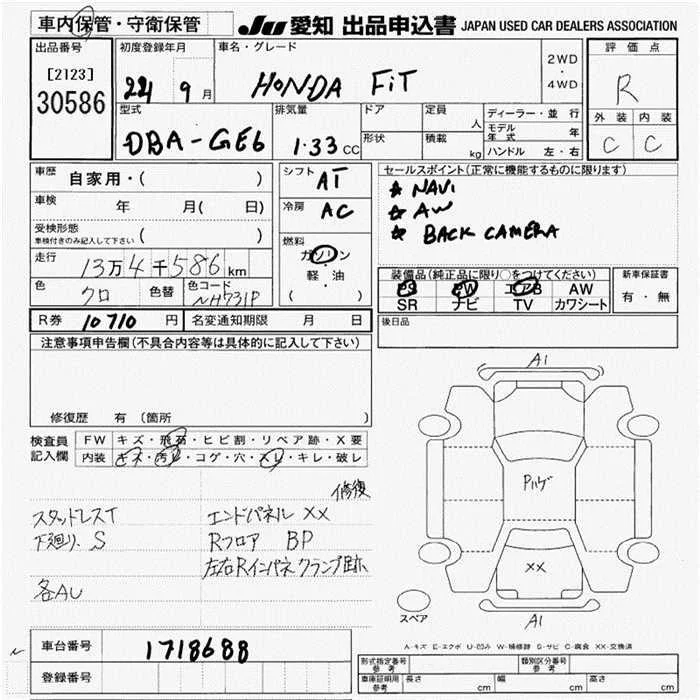 車内保管・守衛保管
JU 愛知 出品申込書 JAPAN USED CAR DEALERS ASSOCIATION
出品番号
[2123]
30586
初度登録年月
車名・グレード
9月
HONDA FiT
2WD
・
4WD
評価点
R
外装 内装
C C
型式
DBA-GE6
排気量
1.33 CC
ドア
形状
定員
人
積載
kg
ディーラー・並行
モデル年式 年
ハンドル 左・右
車歴
自家用・( )
車検
年 月( 日)
受検形態
車検付きのみ記入して下さい ( )
走行
13万4千586km
色
クロ
色替
色コード
NH731P
シフト
AT
冷房
AC
燃料
ガソリン
・
軽・油
( )
セールスポイント(正常に機能するものに限ります)
☆ NAVI
☆ AW
☆ BACK CAMERA
装備品(純正品に限り○をつけてください)
PS PW エアB AW
SR ナビ TV カワシート
新車保証書
有・無
R券 10710 円
名変通知期限 月 日
後日品
注意事項申告欄(不具合内容等は具体的に記入して下さい)
修復歴 有 (箇所 )
検査員記入欄
FW キズ・飛石・ヒビ割・リペア跡・X要
内装 キズ・汚レ・コゲ・穴・スレ・キレ・破レ
修復
スタッドレスT
下廻り、S
各AU
エンドパネル XX
Rフロア BP
左右Rインパネクランプ跡
A1
Pハゲ
XX
A1
スペア
A-キズ E-エクボ U-凹み W-補修跡 S-サビ C-腐食 XX-交換済
車台番号 1718688
登録番号
型式指定番号
参考
類別区分番号
参考
車庫証明用
参考
長さ cm 幅 cm 高さ cm